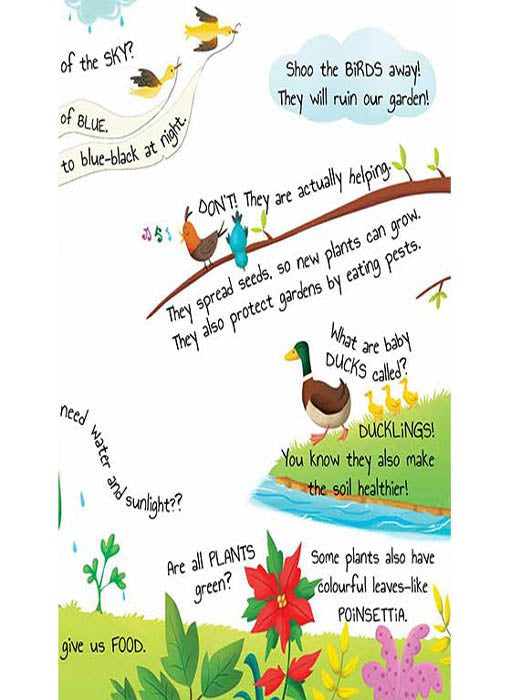 of the SKY?
of BLUE.
to blue-black at night.
Shoo the BIRDS away!
They will ruin our garden!
DON'T! They are actually helping.
They spread seeds, so new plants can grow.
They also protect gardens by eating pests.
What are baby
DUCKS called?
DUCKLINGS!
You know they also make
the soil healthier!
need water and sunlight??
Are all PLANTS
green?
Some plants also have
colourful leaves–like
POINSETTIA.
give us FOOD.